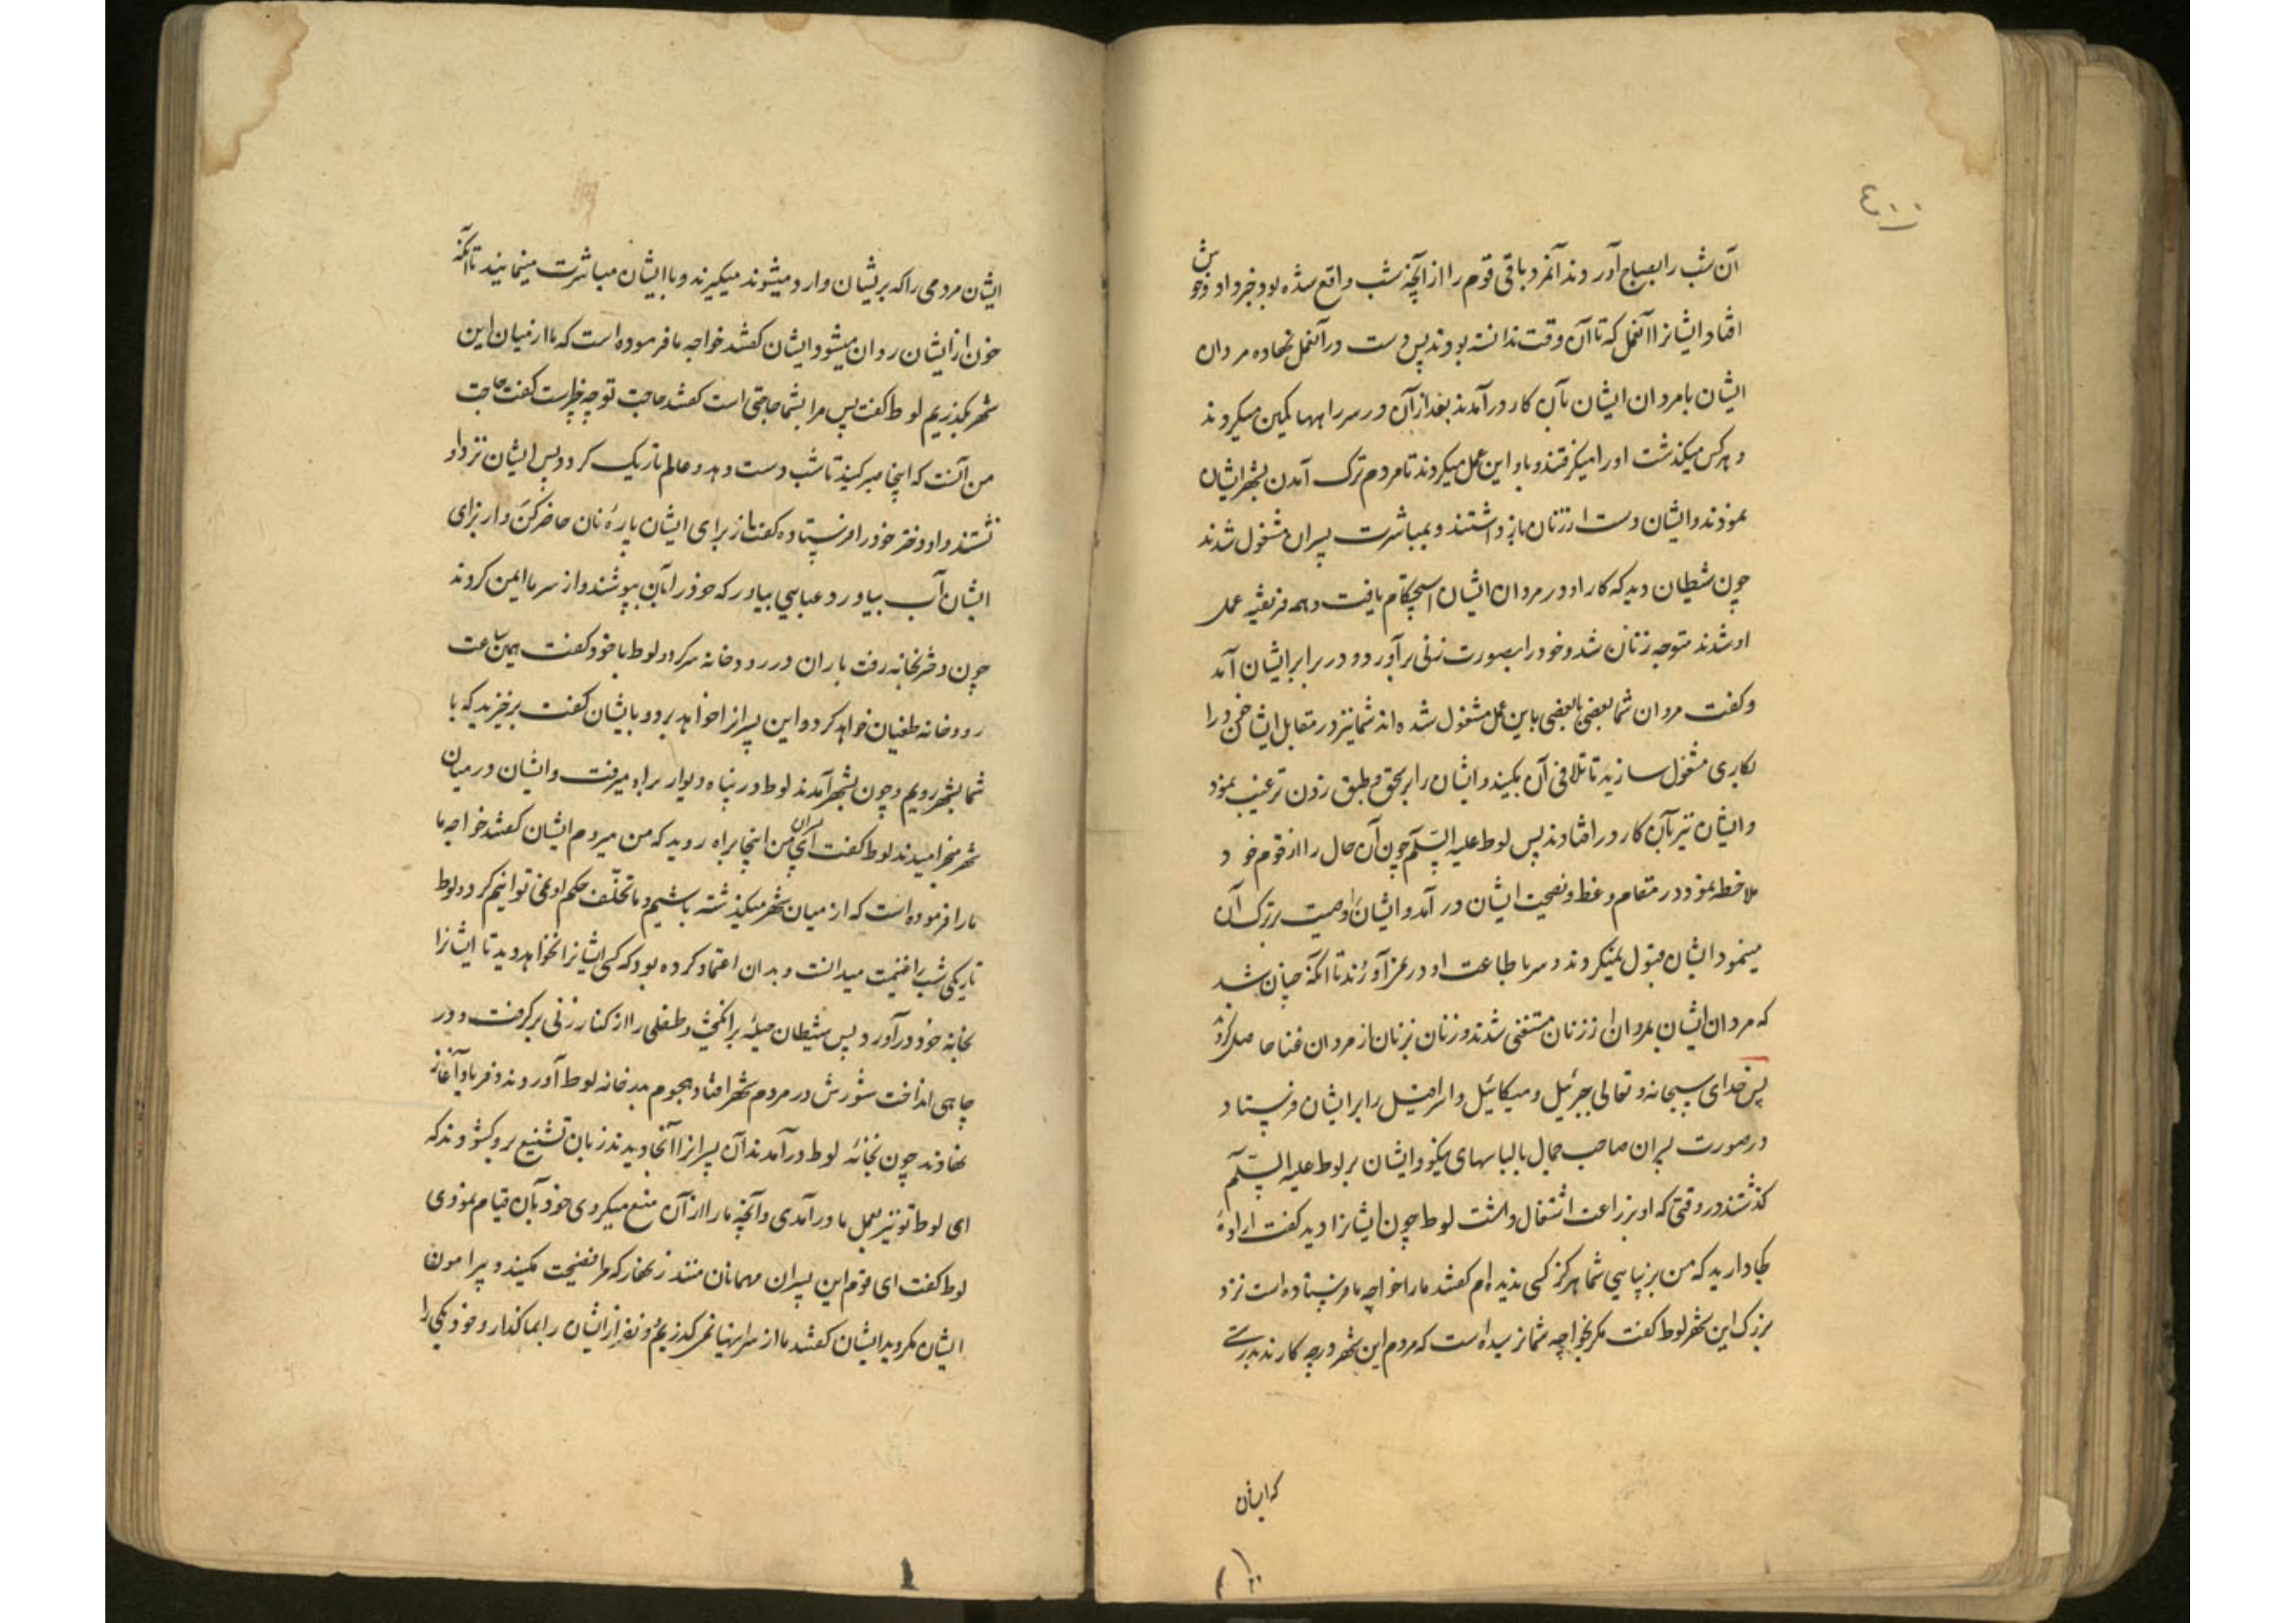 ٤٠٠
آن شب را بصباح آوردند آنمرد باقی قوم را از آنچه شب واقع شده بود خبر داد و خوش
افتاد ایشانرا آنعمل که تا آن وقت ندانسته بودند پس دست در آنعمل نهاده مردان
ایشان بامردان ایشان بآن کار درآمدند بعد از آن در سر راهها کمین میکردند
و هرکس میکذشت او را میکرفتند و باو این عمل میکردند تا مردم ترک آمدن بشهر ایشان
نمودند و ایشان دست از زنان باز داشتند و بمباشرت پسران مشغول شدند
چون شیطان دید که کار او در مردان ایشان استحکام یافت و همه فریفتیه عمل
او شدند متوجه زنان شد و خود را بصورت زنی برآورد و در برابر ایشان آمد
و کفت مردان شما بعضی ببعضی باین عمل مشغول شده اند شما نیز در مقابل ایشان خود را
بکاری مشغول سازید تا تلافی آن بکنید و ایشان را بر طبق زدن ترغیب نمود
و ایشان نیز بآن کار درافتادند پس لوط علیه السّلم چون آن حال را از قوم خود
ملاحظه نمود در مقام وعظ و نصیحت ایشان در آمد و ایشان را وصیت بترک آن
مینمود ایشان قبول نمیکردند و سر باطاعت او در نمی آوردند تا آنکه چنان شد
که مردان ایشان بمردان از زنان مستغنی شدند و زنان بزنان از مردان غنا حاصل کردند
پس خدای سبحانه و تعالی جبرئیل و میکائیل و اسرافیل را بر ایشان فرستاد
در صورت پسران صاحب جمال با لباسهای نیکو و ایشان بر لوط علیه السّلم
کذشتند در وقتی که او بزراعت اشتغال داشت لوط چون ایشانرا دید کفت ارادهٔ
کجا دارید که من بزیبایی شما هرکز کسی ندیده ام کفتند ما را خواجه ما فرستاده است نزد
بزرک این شهر لوط کفت مکر بخواجه شما نرسیده است که مردم این شهر در چه کارند بدرستی
که ایشان
ایشان مردمی را که بر ایشان وارد میشوند میکیرند و با ایشان مباشرت مینمایند تا آنکه
خون از ایشان روان میشود ایشان کفتند خواجه ما فرموده است که ما از میان این
شهر بکذریم لوط کفت پس مرا بشما حاجتی است کفتند حاجت تو چه چیز است کفت حاجت
من آنست که اینجا صبر کنید تا شب دست دهد و عالم تاریک کردد پس ایشان نزد او
نشستند و او دختر خود را فرستاده کفت از برای ایشان پارهٔ نان حاضر کن و از برای
ایشان آب بیاور و عبایی بیاور که خود را بآن بپوشند و از سرما ایمن کردند
چون دختر بخانه رفت باران در رودخانه سر کرد لوط با خود کفت همین ساعت
رودخانه طغیان خواهد کرد و این پسرانرا خواهد برد و بایشان کفت برخیزید که با
شما بشهر رویم و چون بشهر آمدند لوط در پناه دیوار براه میرفت و ایشان در میان
شهر میخرامیدند لوط کفت ای پسران من اینجا براه روید که من میروم ایشان کفتند خواجه ما
ما را فرموده است که از میان شهر میکذشته باشیم و ما تخلّف حکم او نمی توانیم کرد و لوط
تاریکی شب را غنیمت میدانست و بدان اعتماد کرده بود که کسی ایشانرا نخواهد دید تا ایشانرا
بخانه خود درآورد پس شیطان حیله برانکیخت و طفلی را از کنار زنی برکرفت و در
چاهی انداخت شورش در مردم شهر افتاد هجوم بدر خانه لوط آوردند و فریاد آغاز
نهادند چون بخانهٔ لوط درآمدند آن پسرانرا آنجا دیدند زبان تشنیع برو کشودند که
ای لوط تو نیز بعمل ما درآمدی و آنچه ما را از آن منع میکردی خود بآن قیام نمودی
لوط کفت ای قوم این پسران مهمانان منند زنهار که مرا فضیحت مکنید و پیرامون
ایشان مکردید ایشان کفتند ما از سر اینها نمی کذریم دو نفر از ایشان را بما کذار و خود یکی را